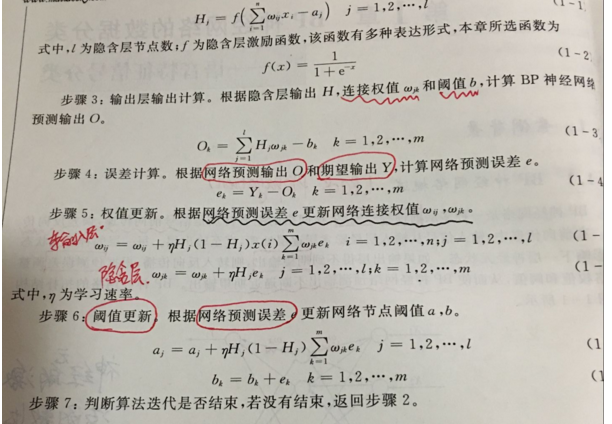 H_j = f(∑_{i=1}^{n} ω_{ij}x_i − a_j)  j = 1,2,⋯,l  (1-1)
式中,l 为隐含层节点数;f 为隐含层激励函数,该函数有多种表达形式,本章所选函数为
f(x) = 1/(1+e^{-x})  (1-2
步骤 3:输出层输出计算。根据隐含层输出 H,连接权值 ω_{jk} 和阈值 b,计算 BP 神经网络
预测输出 O。
O_k = ∑_{j=1}^{l} H_jω_{jk} − b_k  k = 1,2,⋯,m  (1-3
步骤 4:误差计算。根据网络预测输出 O 和期望输出 Y,计算网络预测误差 e。
e_k = Y_k − O_k  k = 1,2,⋯,m  (1-4
步骤 5:权值更新。根据网络预测误差 e 更新网络连接权值 ω_{ij},ω_{jk}。
输入层
ω_{ij} = ω_{ij} + ηH_j(1 − H_j)x(i)∑_{k=1}^{m} ω_{jk}e_k  i = 1,2,⋯,n;j = 1,2,⋯,l  (1-
隐含层
ω_{jk} = ω_{jk} + ηH_je_k  j = 1,2,⋯,l;k = 1,2,⋯,m  (1-
式中,η 为学习速率。
步骤 6:阈值更新。根据网络预测误差 e 更新网络节点阈值 a,b。
a_j = a_j + ηH_j(1 − H_j)∑_{k=1}^{m} ω_{jk}e_k  j = 1,2,⋯,l  (1
b_k = b_k + e_k  k = 1,2,⋯,m  (1
步骤 7:判断算法迭代是否结束,若没有结束,返回步骤 2。